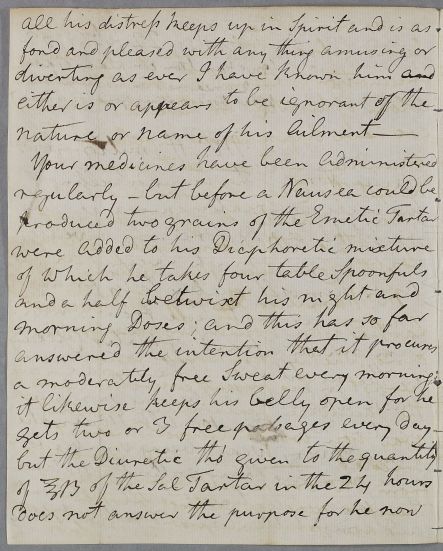 all his distress keeps up in Spirit and is as
fond and pleased with any thing amusing or
diverting as ever I have known him and
either is or appears to be ignorant of the
nature or name of his Ailment—
Your medicines have been administered
regularly – but before a Nausea could be
produced two grains of the Emetic Tartar
were added to his Diaphoretic mixture
of which he takes four table Spoonfuls
and a half betwixt his night and
morning Doses; and this has so far
answered the intention that it procures
a moderately free Sweat every morning;
it likewise keeps his belly open for he
gets two or 3 free passages every day –
but the Diuretic tho given to the quantity
of ʒß of the Sal Tartar in the 24 hours
does not answer the purpose for he now